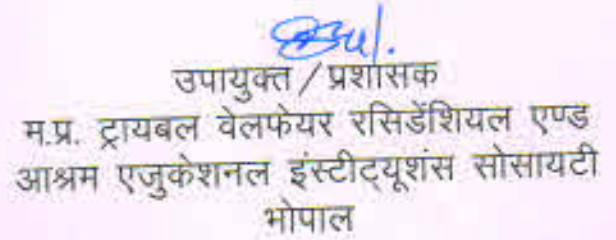 उपायुक्त / प्रशासक
म.प्र. ट्रायबल वेलफेयर रसिडेंशियल एण्ड
आश्रम एजुकेशनल इंस्टीट्यूशंस सोसायटी
भोपाल